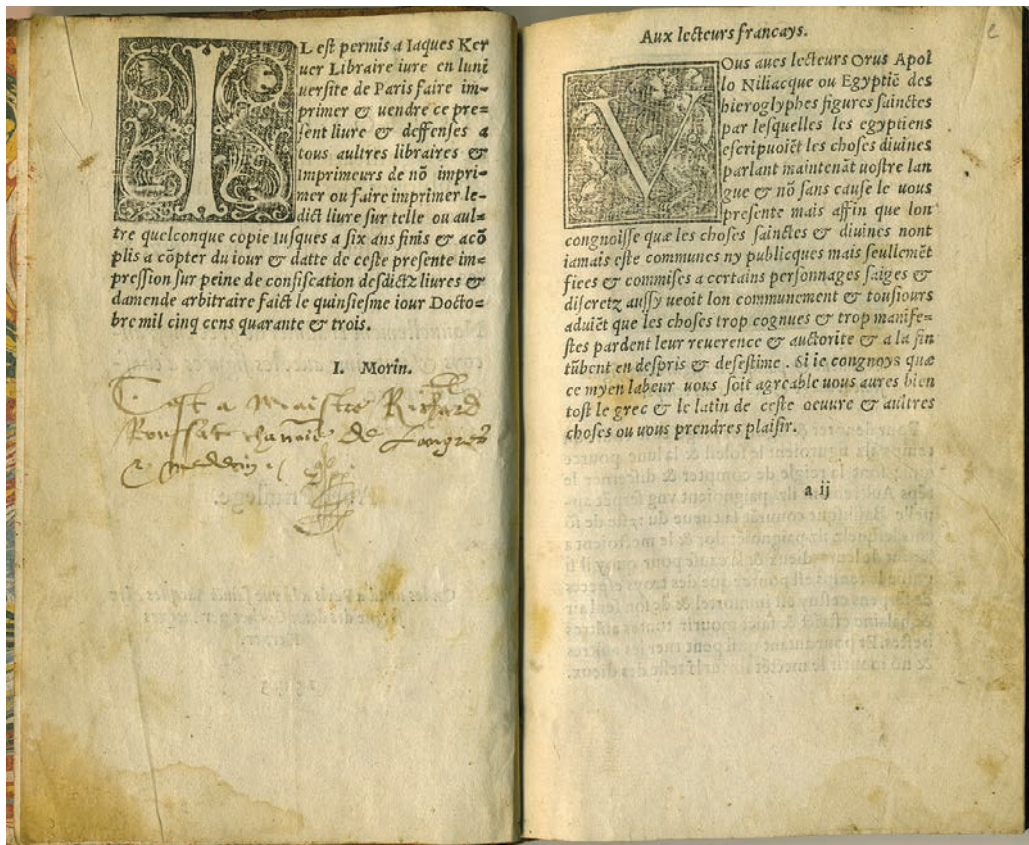 IL est permis a Iaques Ker
uer Libraire iure en luni
uersite de Paris faire im=
primer & uendre ce pre=
sent liure & deffenses a
tous aultres libraires &
Imprimeurs de nõ impri=
mer ou faire imprimer le=
dict liure sur telle ou aul=
tre quelconque copie Iusques a six ans finis & acõ
plis a cõpter du iour & datte de ceste presente im=
pression sur peine de confiscation desdictz liures &
damende arbitraire faict le quinsiesme iour Docto=
bre mil cinq cens quarante & trois.
I. Morin.
C'est a maistre Richard
Roussat chanoie de Langres
& medecin
Aux lecteurs francays.
2
VOus aues lecteurs Orus Apol
lo Niliacque ou Egyptiẽ des
hieroglyphes figures sainctes
par lesquelles les egyptiens
escripuoiẽt les choses diuines
parlant maintenãt uostre lan
gue & nõ sans cause le uous
presente mais affin que lon
congnoisse quæ les choses sainctes & diuines nont
iamais este communes ny publicques mais seullemẽt
fiees & commises a certains personnages saiges &
discretz aussy ueoit lon communement & tousiours
aduiẽt que les choses trop cognues & trop manife=
stes pardent leur reuerence & auctorite & a la fin
tũbent en despris & desestime. Si ie congnoys quæ
ce myen labeur uous soit agreable uous aures bien
tost le grec & le latin de ceste oeuure & aultres
choses ou uous prendres plaisir.
a ij